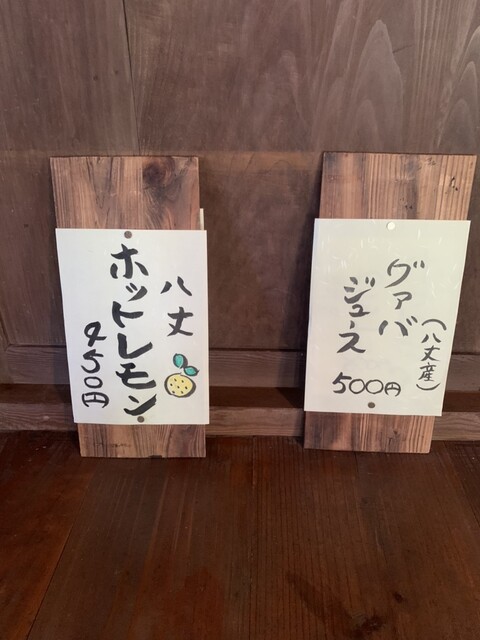 八丈
ホットレモン
450円
(八丈産)
グァバ
ジュース
500円